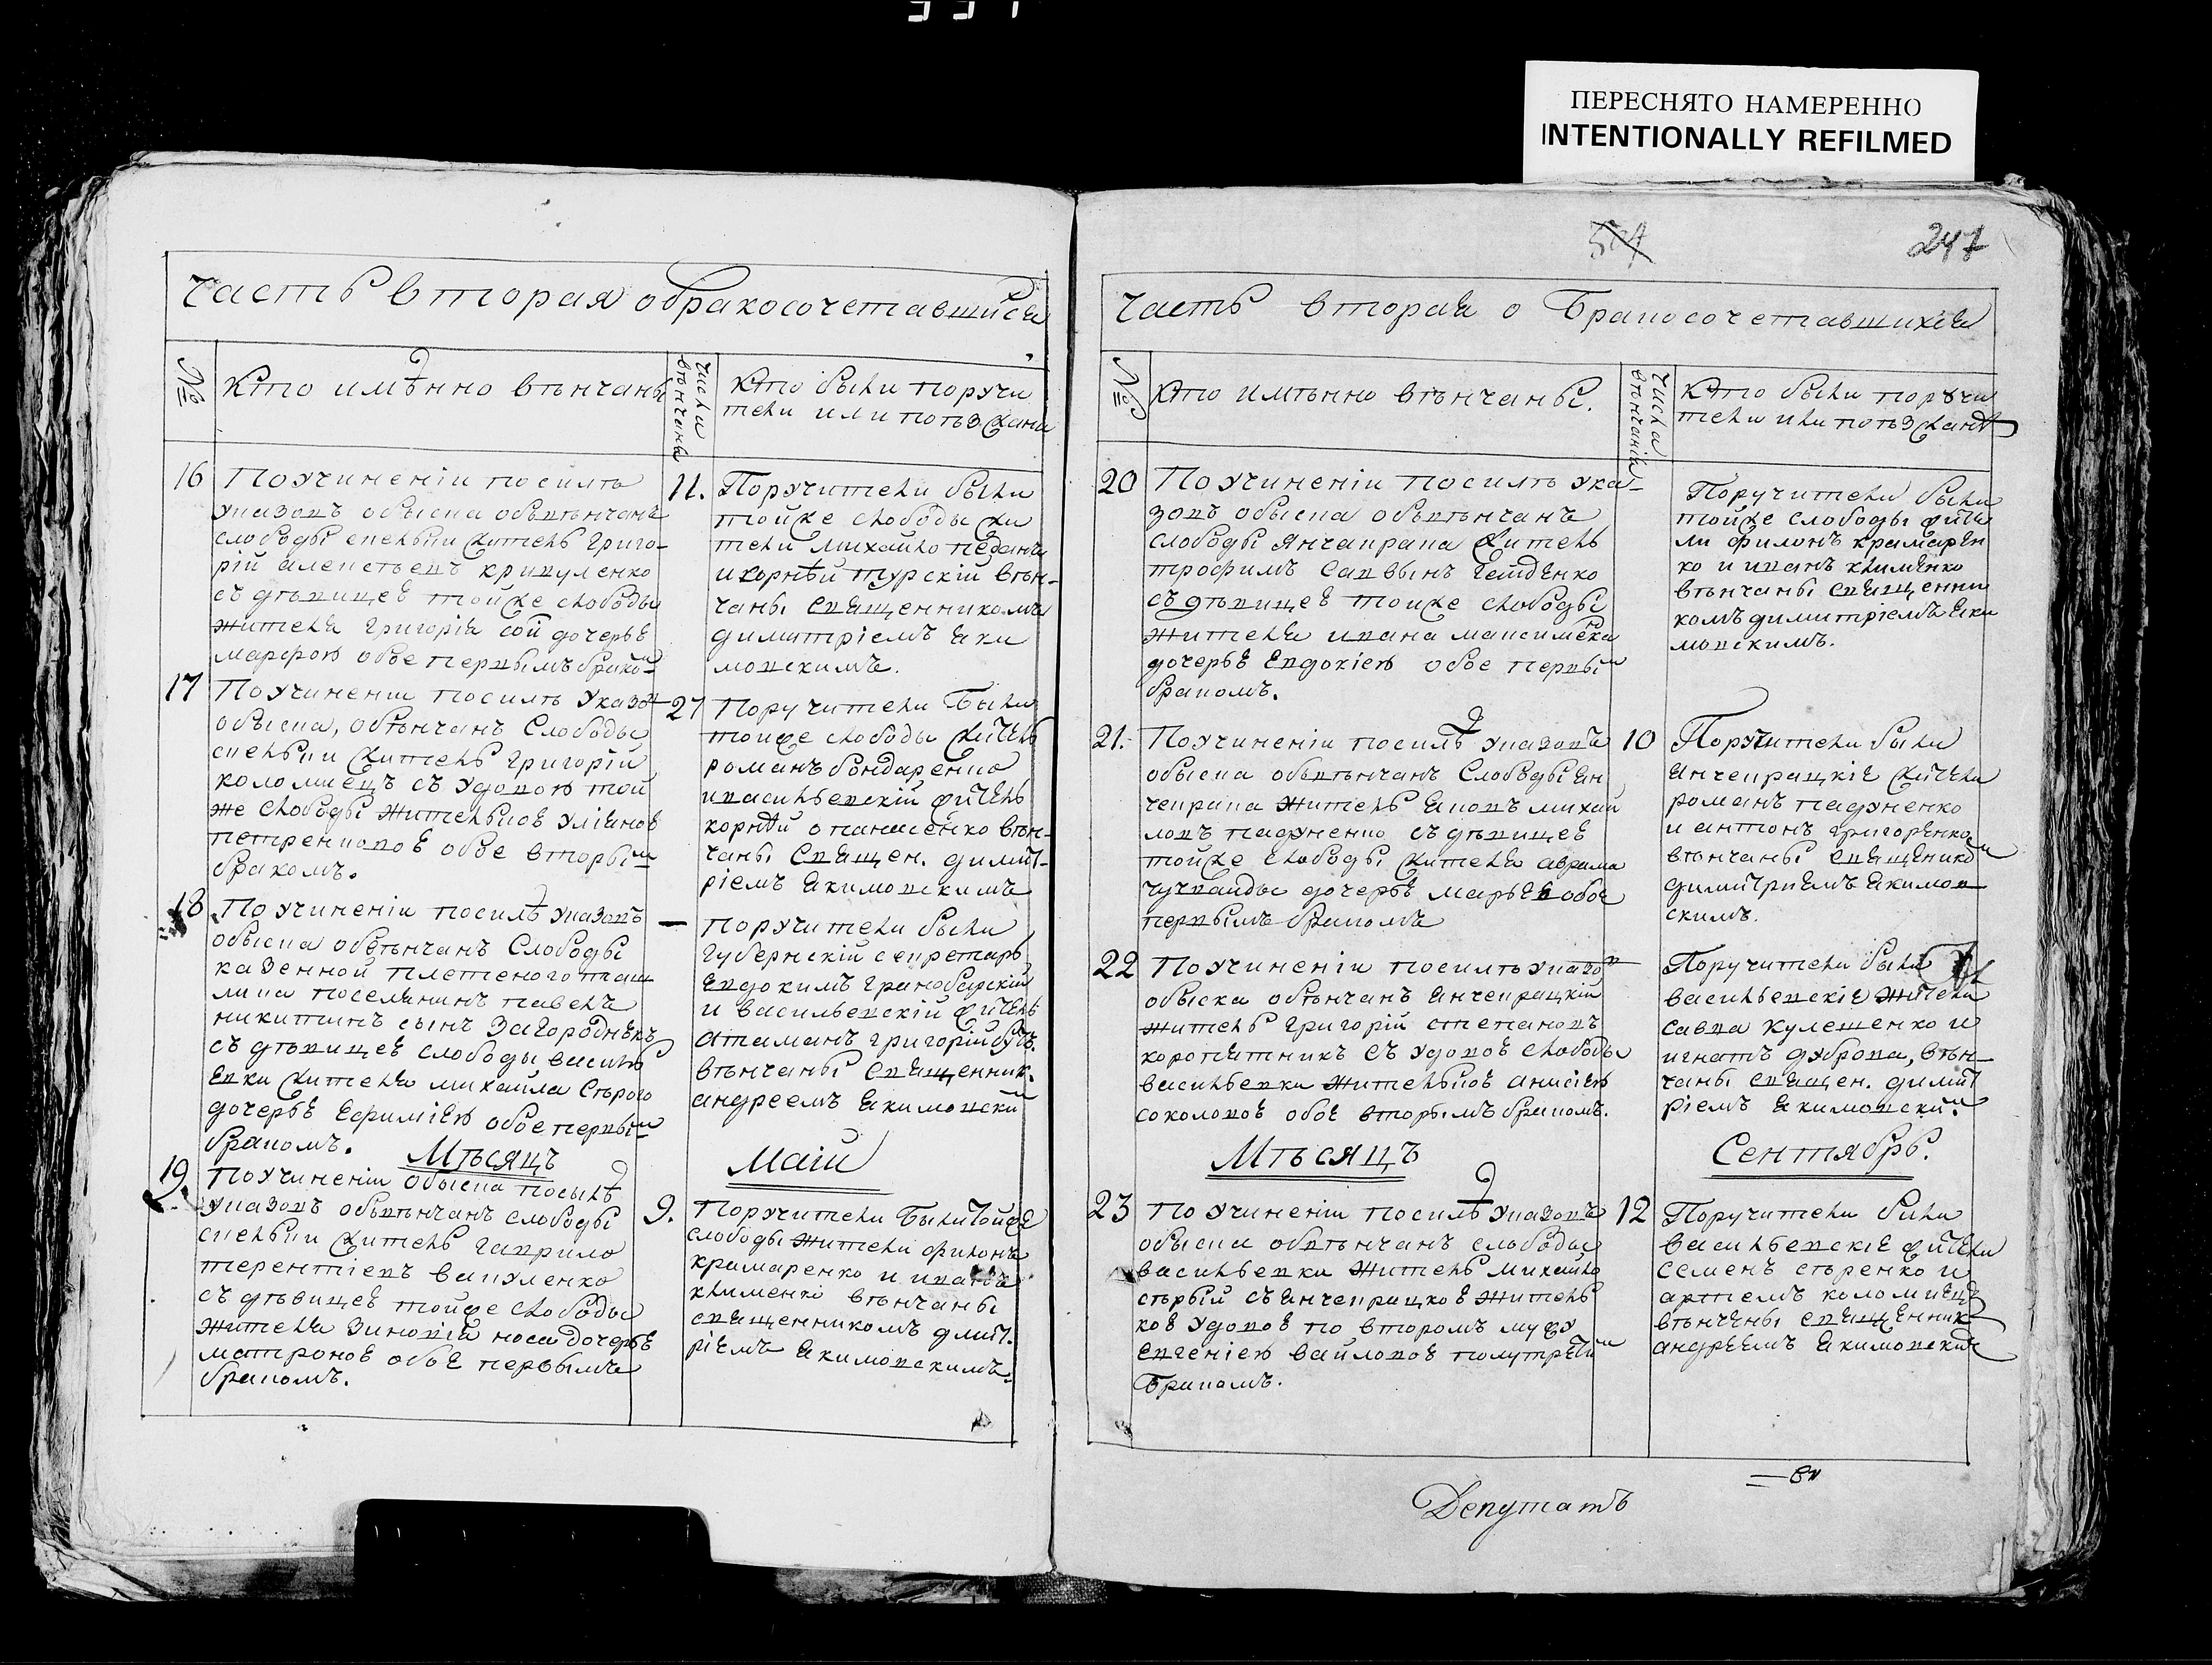 ПЕРЕСНЯТО НАМЕРЕННО
INTENTIONALLY REFILMED
247
Часть вторая о бракосочетавшийся
№
Кто имѣнно вѣнчаны
Числа вѣнчаній
Кто были поручи
тели или поѣзжани
16
По учиненіи по силѣ
указовъ обыска обвѣнчанъ
слободы житель Григо-
рій Алексѣевъ Крикуленко
съ дѣвицеѣ тойже слободы
жителя Григорія Сой дочерьѣ
Марфою обое первымъ бракомъ
11.
Поручители были
тойже слободы жи
тели Михайло
и Корнѣй Турскій вѣн-
чаны священникомъ
Димитріемъ Яки
мовскимъ.
17
По учиненіи по силѣ указо
обыска, обѣнчанъ слободы
житель Григорій
Коломиецъ съ удовою той
же слободы жительскоѣ Уліяноѣ
Петренковоѣ обое вторым
бракомъ.
27
Поручители были
тойже слободы житель
Романъ Бондаренко
и васильевскій житель
Корнѣй Опанасенко вѣн-
чаны священ. Димит-
ріемъ Якимовскимъ
18
По учиненіи по силѣ указовъ
обыска обвѣнчан слободы
казенной Плетеного Таш
лика поселянинъ Павелъ
Никитинъ сынъ Загороднѣкъ
съ дѣвицеѣ слободы Василь
евки жителя Михаила Сѣрого
дочерьѣ Ефиміею обое первым
бракомъ.
Поручители были
губернскій секретарь
Евдокимъ
и васильевскій житель
атаманъ Григорій
вѣнчаны священник.
Андреемъ Якимовски
Мѣсяцъ
Маій
19.
По учиненіи обыска по силѣ
указовъ обвѣнчанъ слободы
житель Гаврило
Терентіевъ Вакуленко
съ дѣвицеѣ тойже слободы
жителя Зиновій Носа дочерьѣ
Матроноѣ обоѣ первымъ
бракомъ.
9.
Поручители были тойже
слободы жители Филонъ
Крамаренко и Иванъ
Клименко вѣнчаны
священникомъ Дмит.
ріемъ Якимовскимъ.
Часть вторая о бракосочетавшихся
№
Кто имѣнно вѣнчаны.
Числа вѣнчаній
Кто были поручи
тели или поѣзжанѣ
20
По учиненіи по силѣ ука-
зовъ обыска обвѣнчанъ
слободы Янчакрака житель
Трофимъ Саввынъ Гейденко
съ дѣвицеѣ тойже слободы
жителя Ивана Максименка
дочерьѣ Евдокіею обое первы
бракомъ.
Поручители были
тойже слободы жите
ли Филонъ Крамарен
ко и Иванъ Клименко
вѣнчаны священни
комъ Димитріемъ Яки
мовскимъ.
21.
По учиненіи по силѣ указовъ
обыска обвѣнчан слободы Ян
чекрака житель Яковъ Михай
ловъ Падуненко съ дѣвицеѣ
тойже слободы жителя Аврама
дочерьѣ обое
первымъ бракомъ
10
Поручители были
янчекрацкіе жители
Романъ Падуненко
и Антонъ Григоренко
вѣнчаны священико
Димитриемъ Якимов
скимъ.
22
По учиненіи по силѣ указо
обыска обвѣнчан янчекрацкій
житель Григорій Степановъ
Коропятникъ съ удовоѣ слободы
Васильевки жительскоѣ Анисіею
Соколовоѣ обоѣ вторымъ бракомъ.
Поручители были
васильевскіе жители
Савва Кулешенко и
Игнатъ Дуброва, вѣн-
чаны священ. Димит
ріемъ Якимовским.
Мѣсяцъ
Сентябрь.
23
По учиненіи по силѣ указовъ
обыска обвѣнчанъ слободы
Васильевки житель Михайло
Сѣрый съ янчекрацкоѣ житель
скоѣ удовоѣ по второмъ мужу
Евгеніею Вайловоѣ полутретим
бракомъ.
12
Поручители были
васильевскіе жители
Семенъ Сѣренко и
Артемъ Коломиецъ
вѣнчены священник
Андреемъ Якимовским
Депутатъ